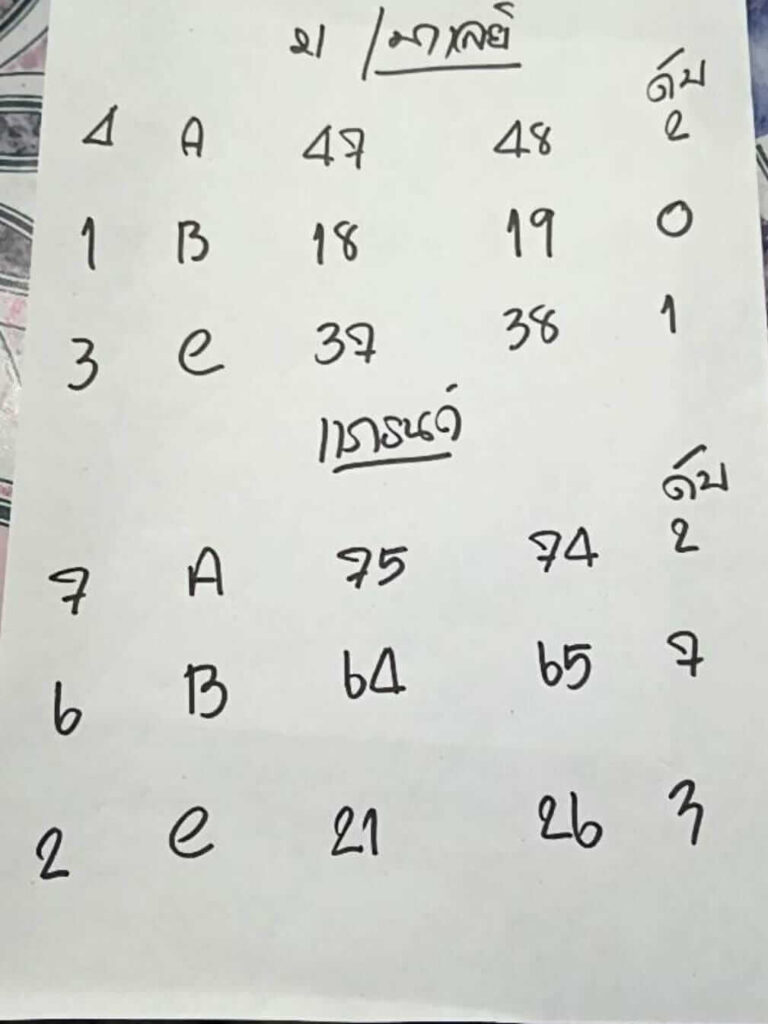 ม / มาเลย์
ดับ
4 A 47 48 2
1 B 18 19 0
3 C 37 38 1
แกรนด์
ดับ
7 A 75 74 2
6 B 64 65 7
2 C 21 26 3